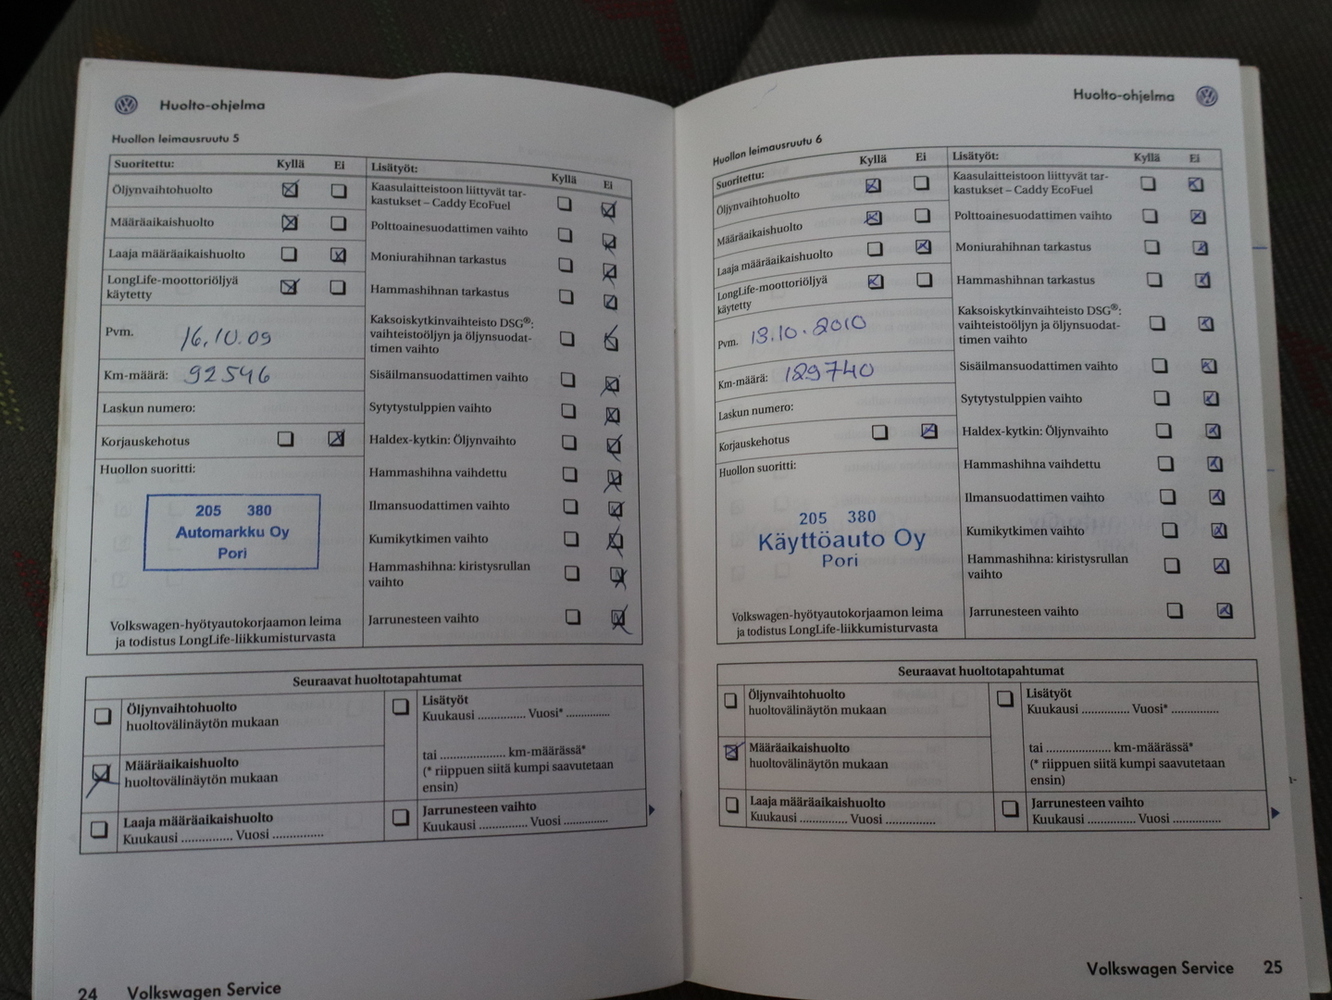 Huolto-ohjelma
Huollon leimausruutu 5
Suoritettu: Kyllä Ei
Öljynvaihtohuolto
Määräaikaishuolto
Laaja määräaikaishuolto
LongLife-moottoriöljyä
käytetty
Pvm. 16.10.09
Km-määrä: 92546
Laskun numero:
Korjauskehotus
Huollon suoritti:
205 380
Automarkku Oy
Pori
Volkswagen-hyötyautokorjaamon leima
ja todistus LongLife-liikkumisturvasta
Lisätyöt: Kyllä Ei
Kaasulaitteistoon liittyvät tar-
kastukset – Caddy EcoFuel
Polttoainesuodattimen vaihto
Moniurahihnan tarkastus
Hammashihnan tarkastus
Kaksoiskytkinvaihteisto DSG®:
vaihteistoöljyn ja öljynsuodat-
timen vaihto
Sisäilmansuodattimen vaihto
Sytytystulppien vaihto
Haldex-kytkin: Öljynvaihto
Hammashihna vaihdettu
Ilmansuodattimen vaihto
Kumikytkimen vaihto
Hammashihna: kiristysrullan
vaihto
Jarrunesteen vaihto
Seuraavat huoltotapahtumat
Öljynvaihtohuolto
huoltovälinäytön mukaan
Määräaikaishuolto
huoltovälinäytön mukaan
Laaja määräaikaishuolto
Kuukausi .............. Vuosi ..............
Lisätyöt
Kuukausi ............. Vuosi* ............
tai .................... km-määrässä*
(* riippuen siitä kumpi saavutetaan
ensin)
Jarrunesteen vaihto
Kuukausi ............. Vuosi ............
24 Volkswagen Service
Huolto-ohjelma
Huollon leimausruutu 6
Suoritettu: Kyllä Ei
Öljynvaihtohuolto
Määräaikaishuolto
Laaja määräaikaishuolto
LongLife-moottoriöljyä
käytetty
Pvm. 13.10.2010
Km-määrä: 129740
Laskun numero:
Korjauskehotus
Huollon suoritti:
205 380
Käyttöauto Oy
Pori
Volkswagen-hyötyautokorjaamon leima
ja todistus LongLife-liikkumisturvasta
Lisätyöt: Kyllä Ei
Kaasulaitteistoon liittyvät tar-
kastukset – Caddy EcoFuel
Polttoainesuodattimen vaihto
Moniurahihnan tarkastus
Hammashihnan tarkastus
Kaksoiskytkinvaihteisto DSG®:
vaihteistoöljyn ja öljynsuodat-
timen vaihto
Sisäilmansuodattimen vaihto
Sytytystulppien vaihto
Haldex-kytkin: Öljynvaihto
Hammashihna vaihdettu
Ilmansuodattimen vaihto
Kumikytkimen vaihto
Hammashihna: kiristysrullan
vaihto
Jarrunesteen vaihto
Seuraavat huoltotapahtumat
Öljynvaihtohuolto
huoltovälinäytön mukaan
Määräaikaishuolto
huoltovälinäytön mukaan
Laaja määräaikaishuolto
Kuukausi ............. Vuosi .............
Lisätyöt
Kuukausi ............. Vuosi* .............
tai .................... km-määrässä*
(* riippuen siitä kumpi saavutetaan
ensin)
Jarrunesteen vaihto
Kuukausi ............. Vuosi .............
Volkswagen Service 25